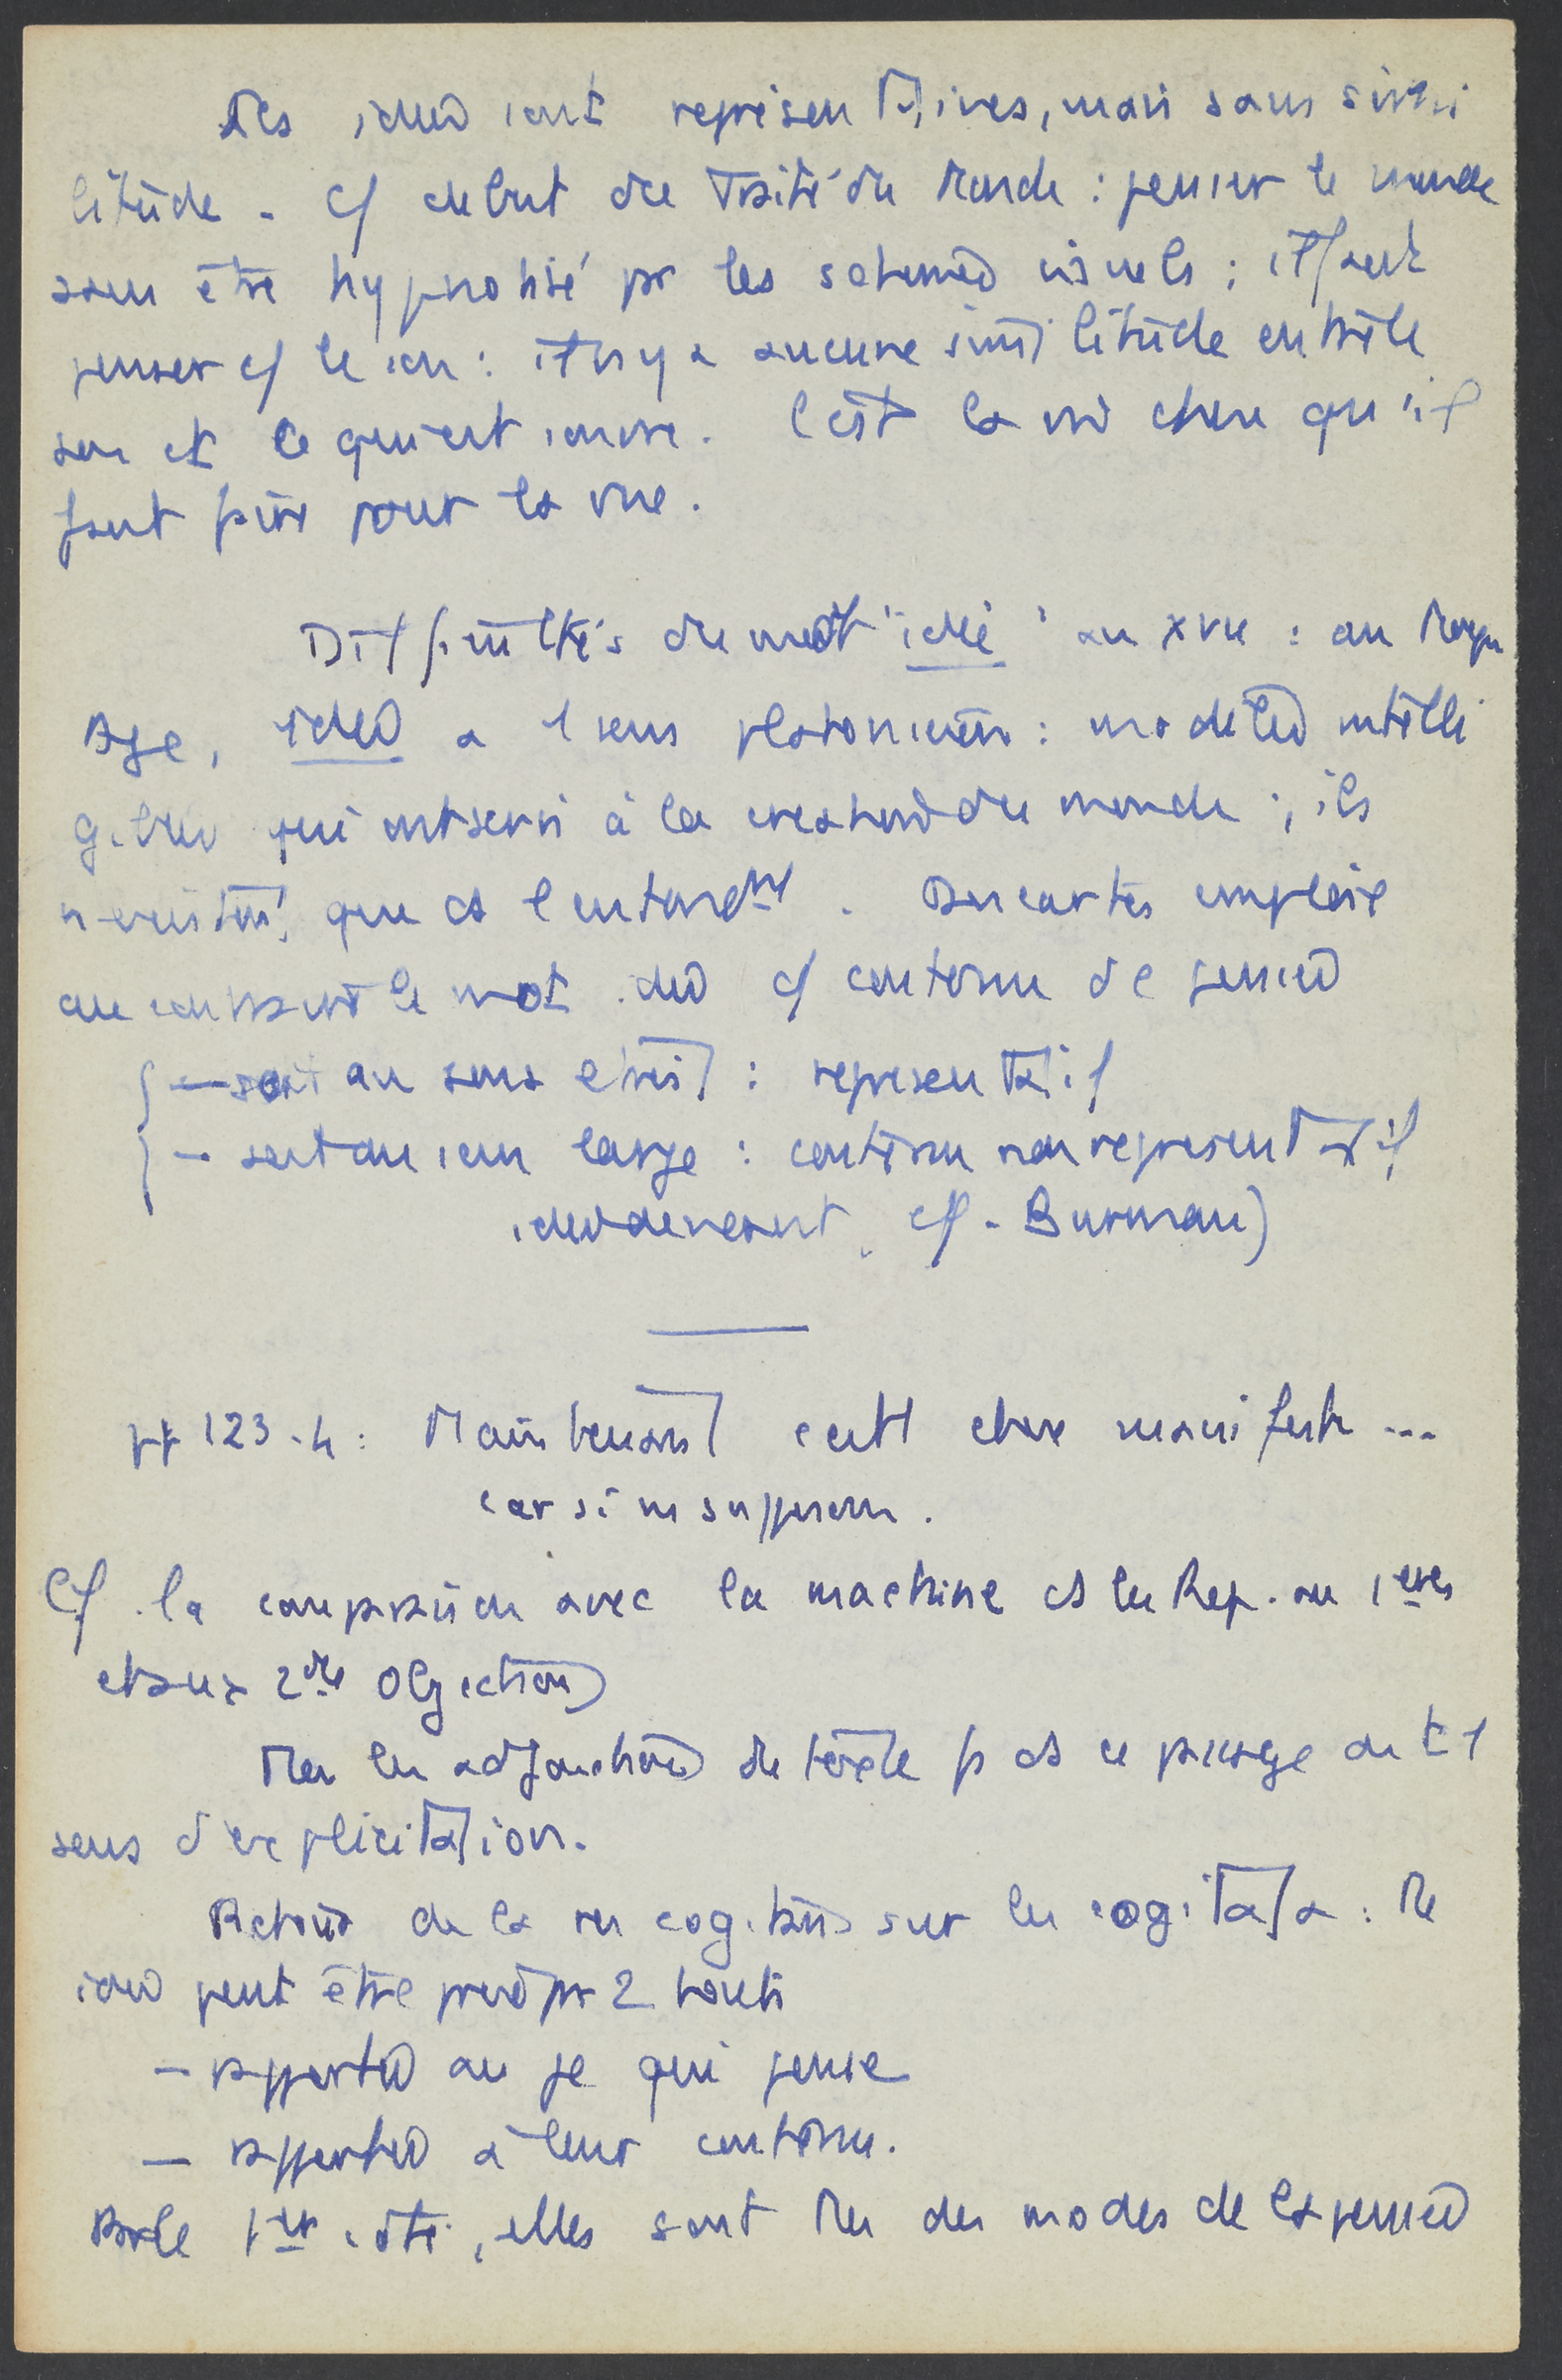 Les idées sont représentatives, mais sans simi
litude. cf début du Traité du Monde : penser le monde
sans être hypnotisé par les schémas visuels ; il faut
penser cf le son : il n'y a aucune similitude entre le
son et ce qui est sonore. C'est la m̂ chose qu'il
faut faire pour la vue.
Difficultés du mot "idée" au XVII : au Moyen
Age, idée a 1 sens platonicien : modèles intelli
gibles qui ont servi à la création du monde ; ils
n'existent que ds l'entendmt. Descartes emploie
au contraire le mot idée cf contenu de pensée
— soit au sens étroit : représentatif
— soit au sens large : contenu non représentatif
cf. Burman)
pp 123-4 : Maintenant c'est 1 chose manifeste ...
car si ns supposons.
Cf. la comparaison avec la machine ds les Rép. aux 1ères
et aux 2des Objections
Mes les adjonctions de texte fr ds ce passage ont 1
sens d'explicitation.
Retour de la res cogitans sur les cogitata : les
idées peut être prises par 2 bouts
— rapportées au je qui pense
— rapportées à leur contenu.
Par le 1er côté, elles sont ttes des modes de la pensée